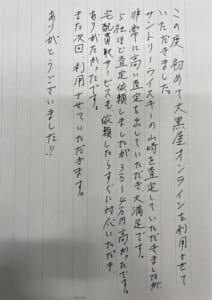 この度、初めて大黒屋オンラインを利用させて
いただきました。
サントリーウイスキーの山崎を査定していただきましたが
非常に高い査定を出していただき、大満足です。
5社ほど査定依頼しましたが3万〜4万円高かったです。
宅配買取サービスも依頼したらすぐに対応いただき、
ありがたかったです。
また次回利用させていただきます。
ありがとうございました!!